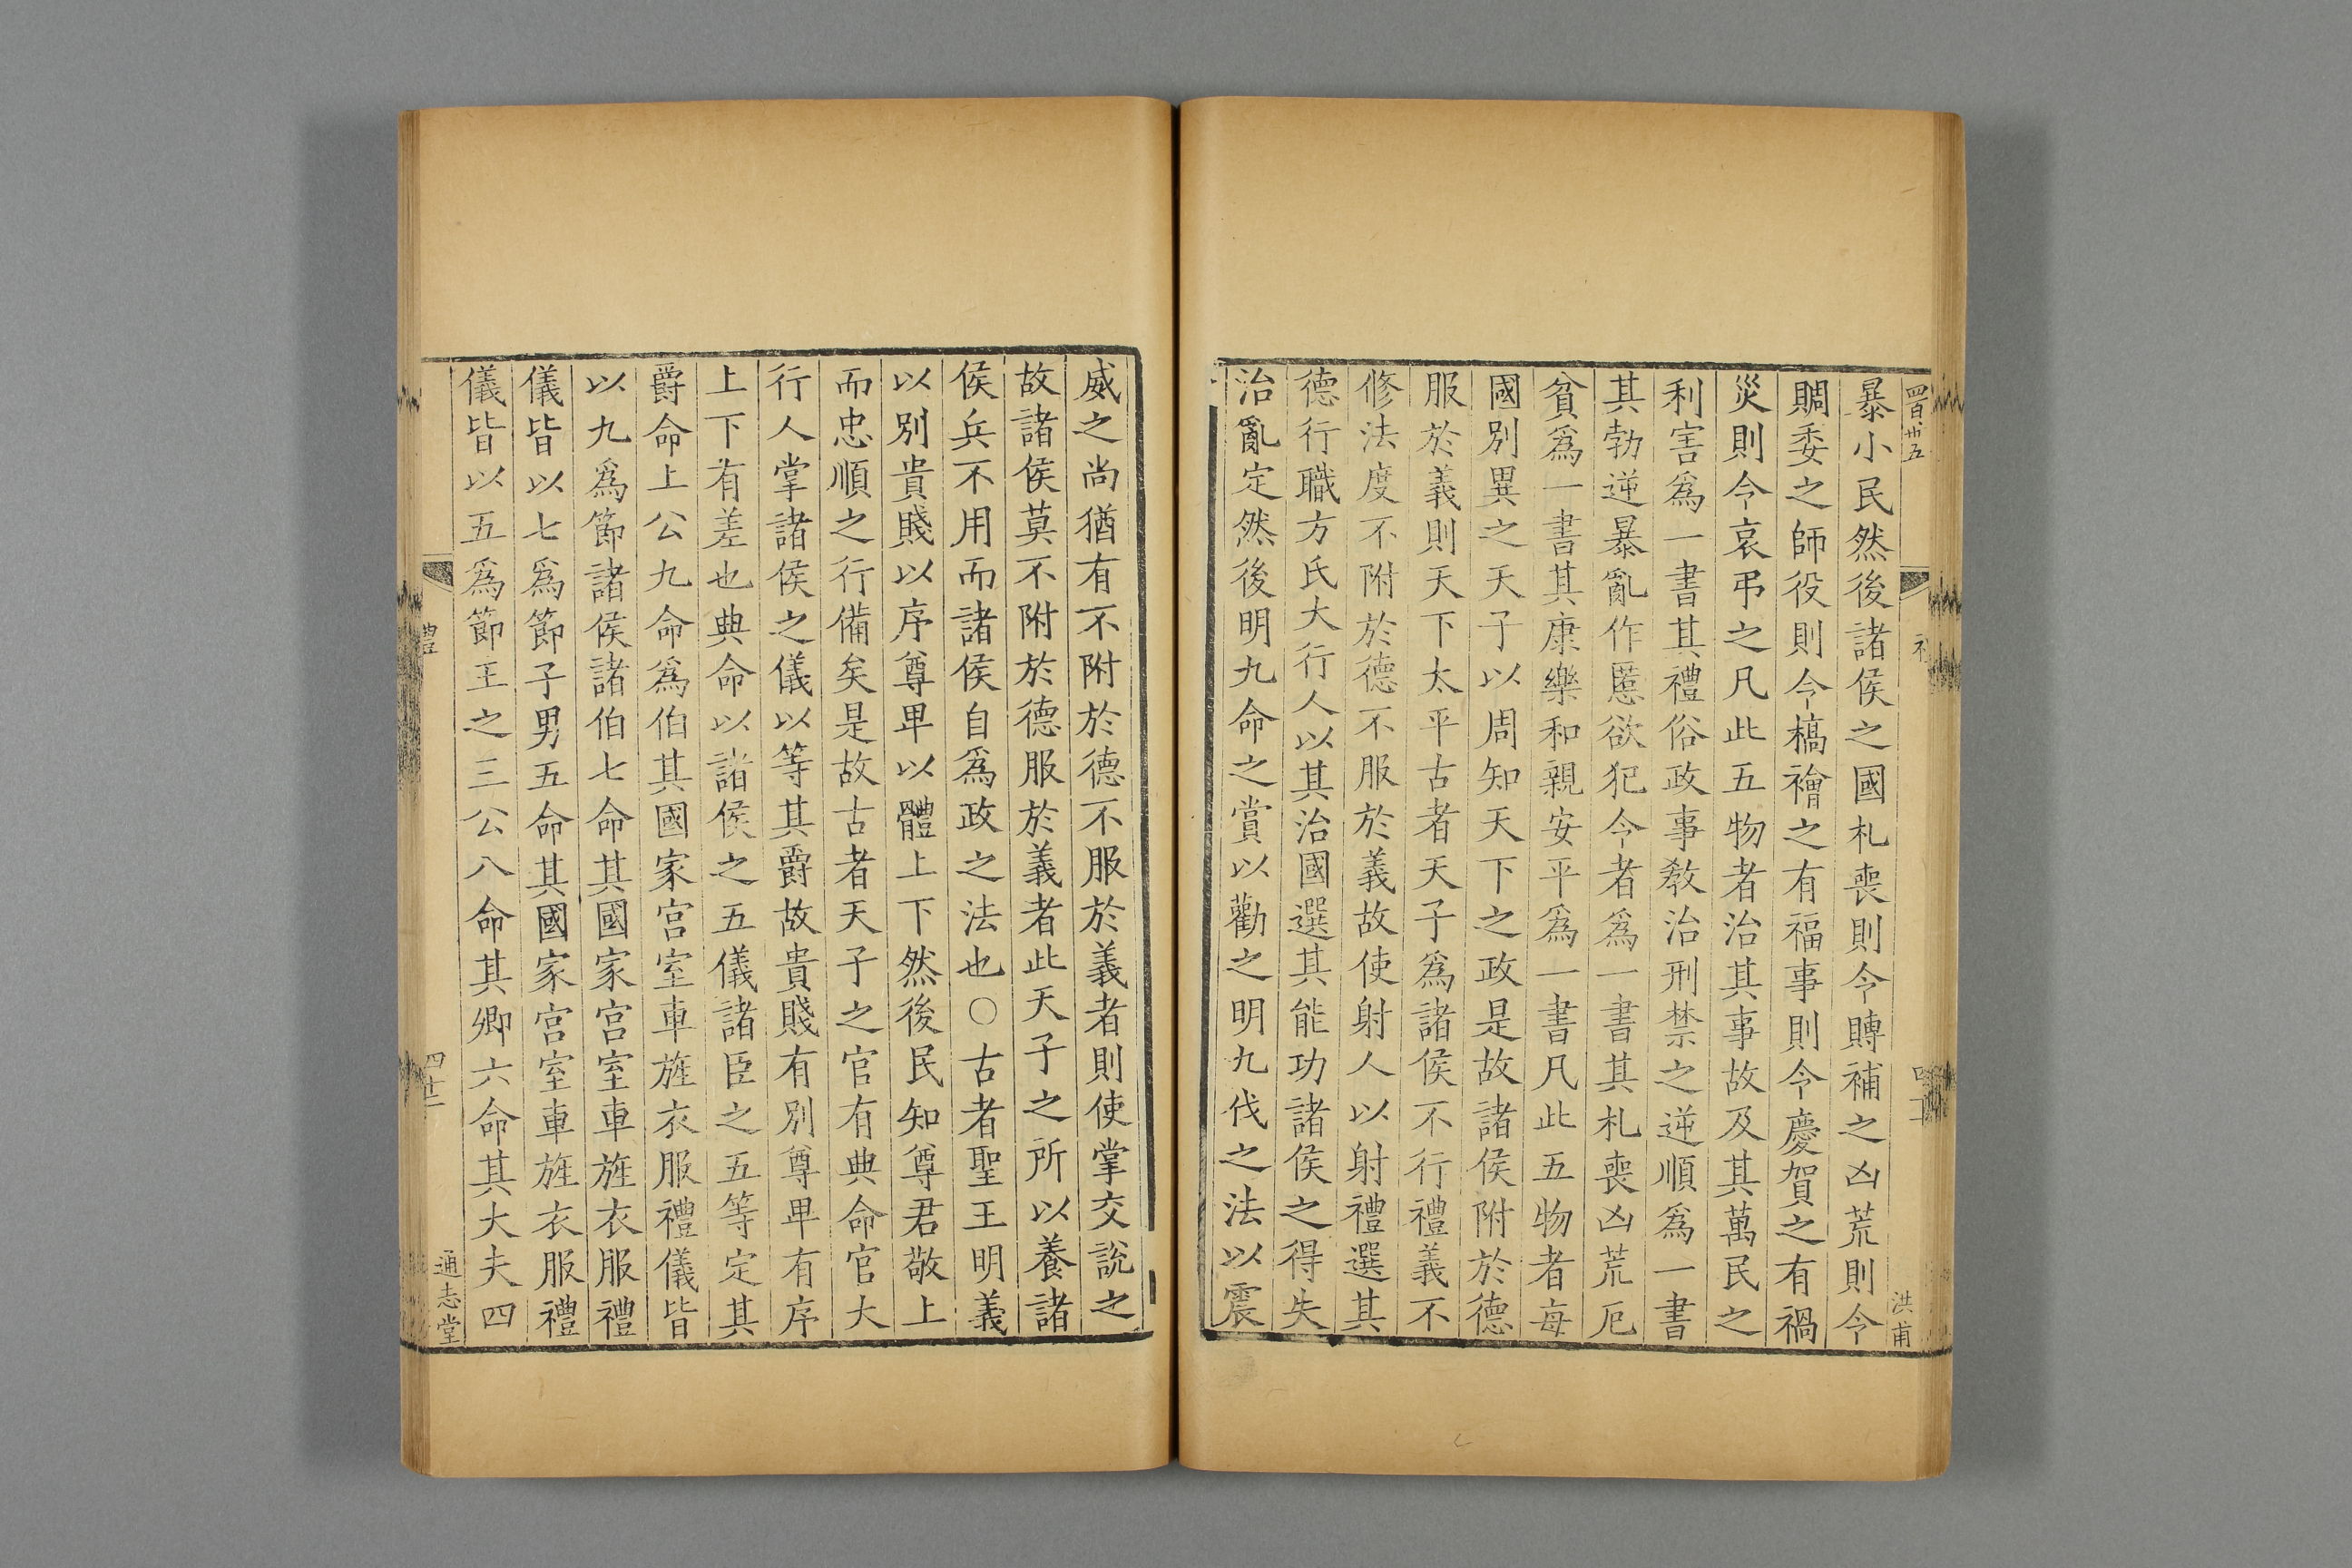 暴小民然後諸侯之國札喪則令賻補之凶荒則令
賙委之師役則令槁禬之有福事則令慶賀之有禍
災則令哀弔之凡此五物者治其事故及其萬民之
利害爲一書其禮俗政事敎治刑禁之逆順爲一書
其勃逆暴亂作慝欲犯令者爲一書其札喪凶荒厄
貧爲一書其康樂和親安平爲一書凡此五物者每
國別異之天子以周知天下之政是故諸侯附於德
服於義則天下太平古者天子爲諸侯不行禮義不
修法度不附於德不服於義故使射人以射禮選其
德行職方氏大行人以其治國選其能功諸侯之得失
治亂定然後明九命之賞以勸之明九伐之法以震
威之尚猶有不附於德不服於義者則使掌交說之
故諸侯莫不附於德服於義者此天子之所以養諸
侯兵不用而諸侯自爲政之法也○古者聖王明義
以別貴賤以序尊卑以體上下然後民知尊君敬上
而忠順之行備矣是故古者天子之官有典命官大
行人掌諸侯之儀以等其爵故貴賤有別尊卑有序
上下有差也典命以諸侯之五儀諸臣之五等定其
爵命上公九命爲伯其國家宮室車旌衣服禮儀皆
以九爲節諸侯諸伯七命其國家宮室車旌衣服禮
儀皆以七爲節子男五命其國家宮室車旌衣服禮
儀皆以五爲節王之三公八命其卿六命其大夫四
四百卅五
洪甫
禮
通志堂